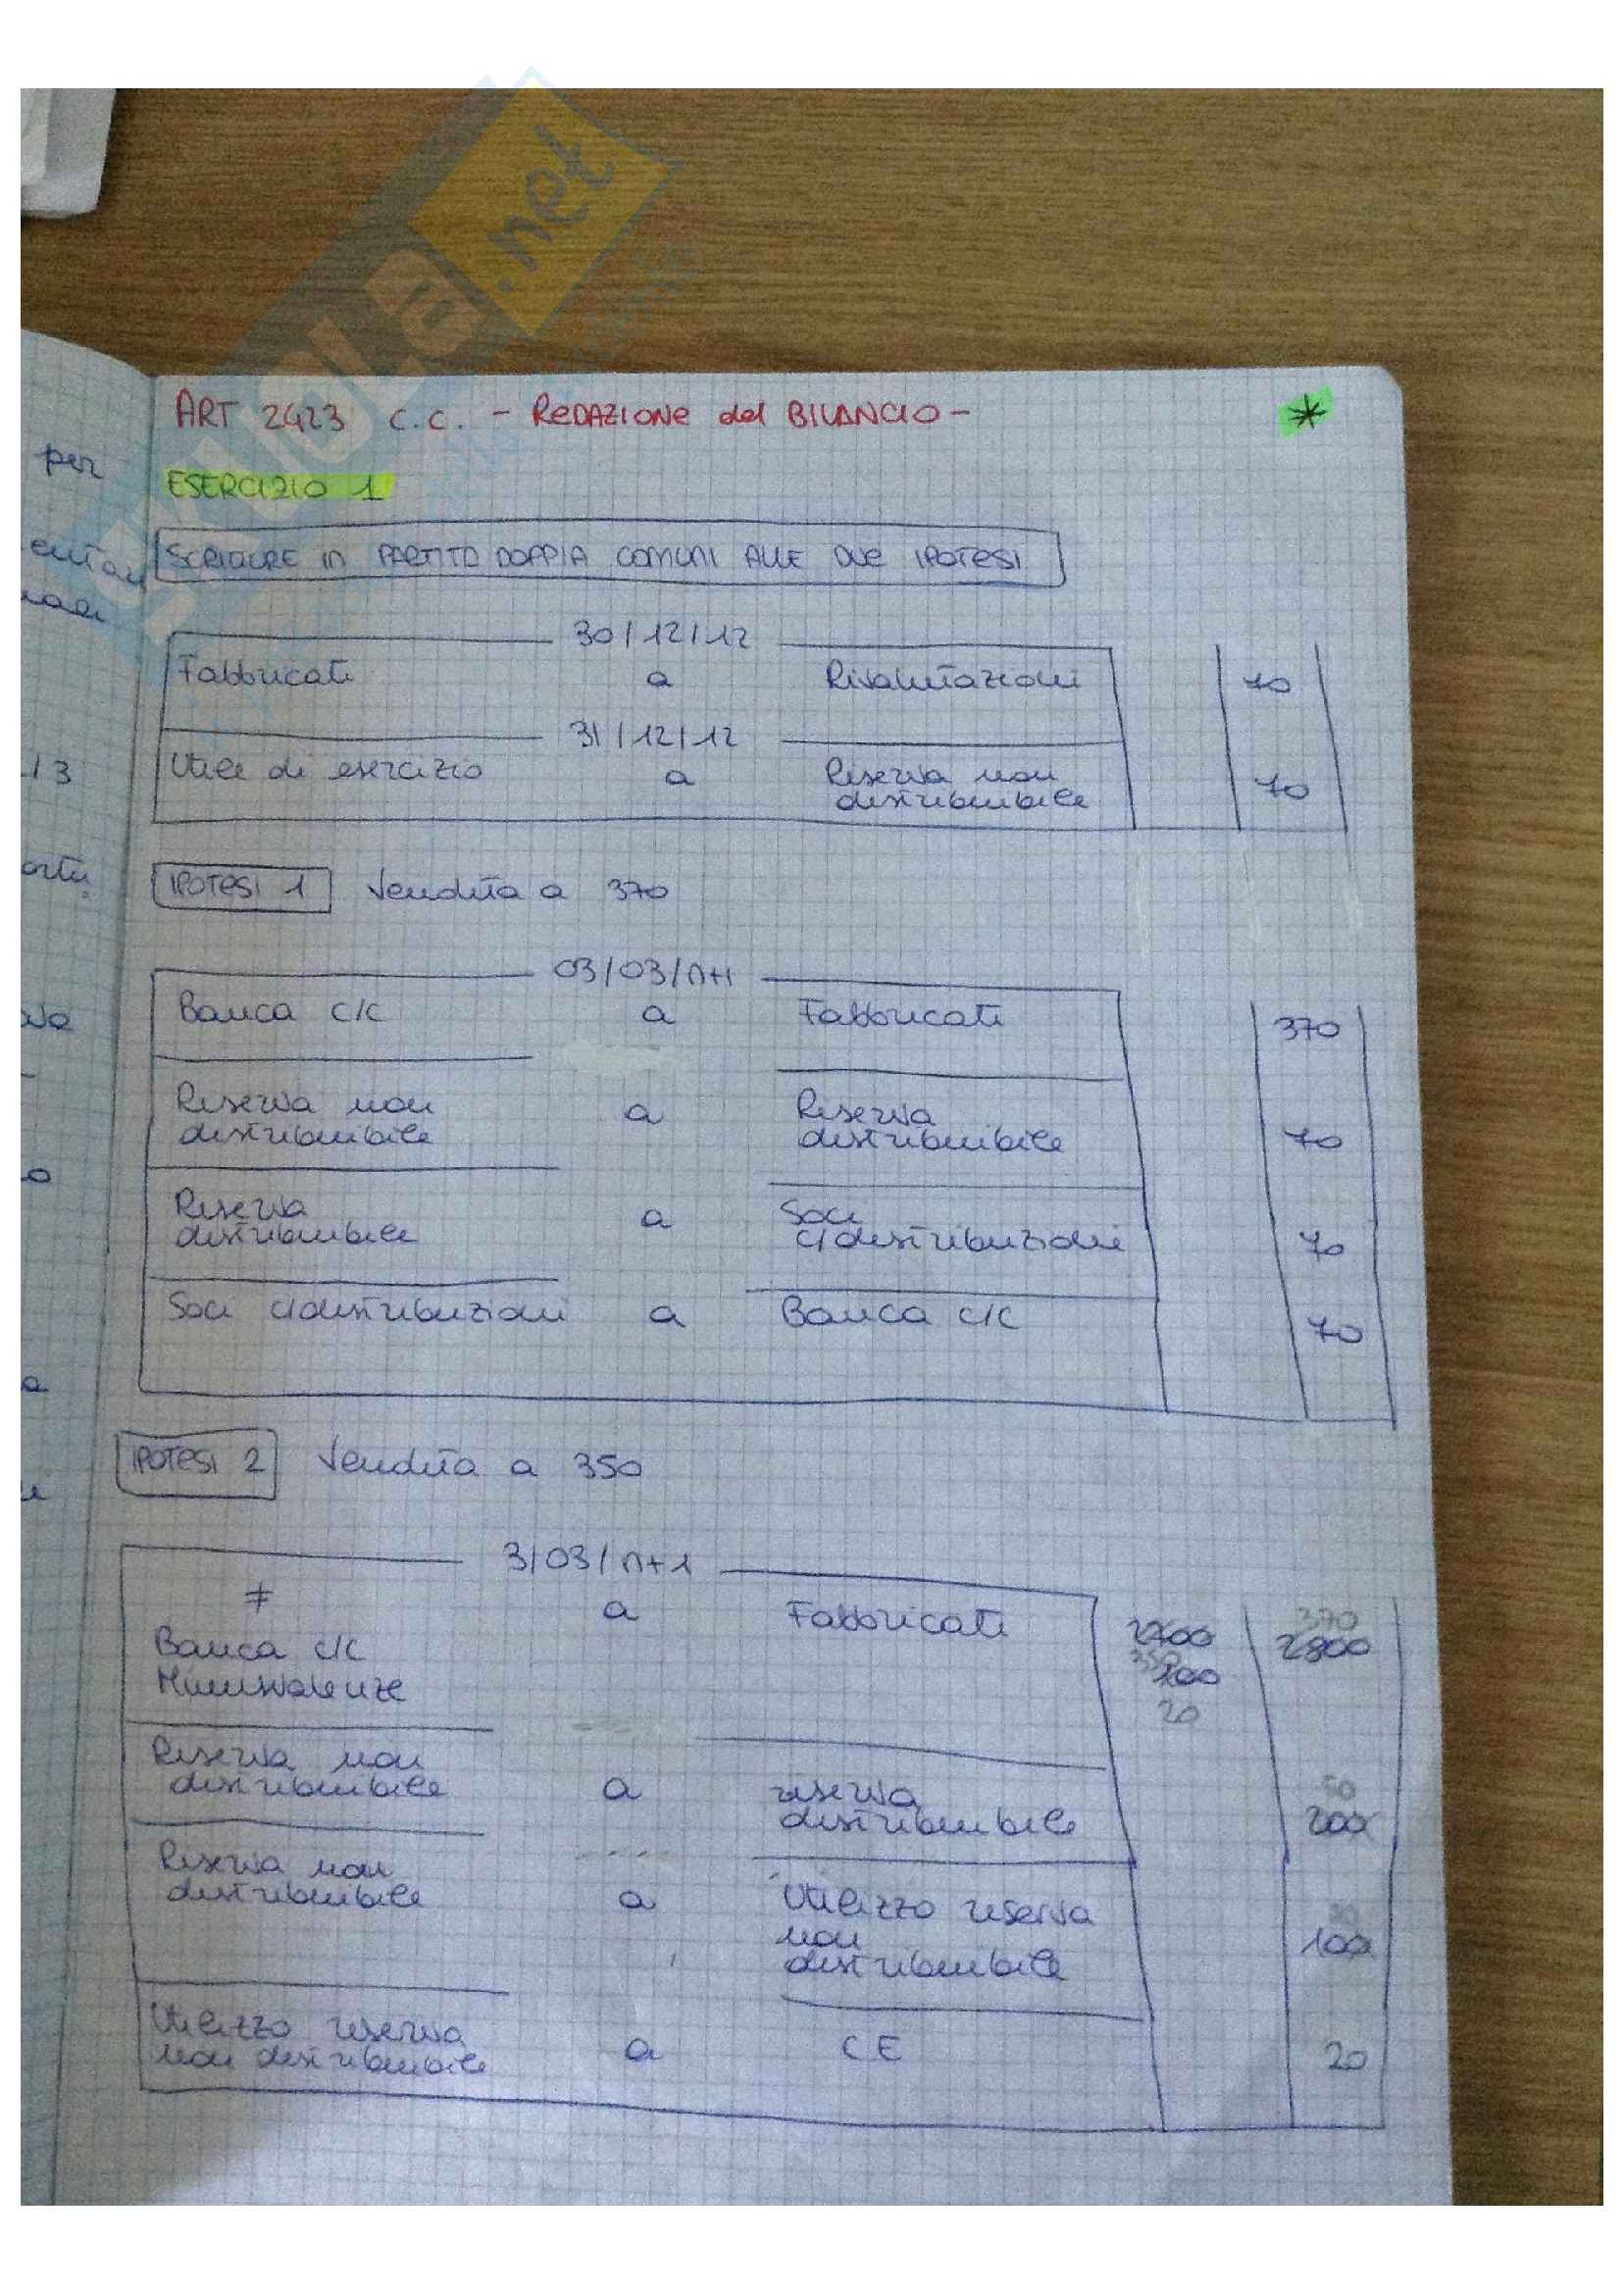 ART 2423 C.C. - REDAZIONE del BILANCIO -
*
per
ESERCIZIO 1
SCRITTURE IN PARTITO DOPPIA COMUNI ALLE DUE IPOTESI
30/12/12
Fabbricati a Rivalutazioni 70
31/12/12
Utile di esercizio a Riserva non
distribuibile 70
IPOTESI 1 Vendita a 370
03/03/n+1
Banca c/c a Fabbricati 370
Riserva non a Riserva
distribuibile distribuibile 70
Riserva a Soci
distribuibile c/distribuzioni 70
Soci c/distribuzioni a Banca c/c 70
IPOTESI 2 Vendita a 350
3/03/n+1
≠ a Fabbricati 370
Banca c/c 2700 2800
Minusvalenze 350 100
20
Riserva non 50
distribuibile a riserva
distribuibile 200
Riserva non
distribuibile a Utilizzo riserva
non 100
distribuibile
Utilizzo riserva
non distribuibile a CE 20
SKUOLA.net